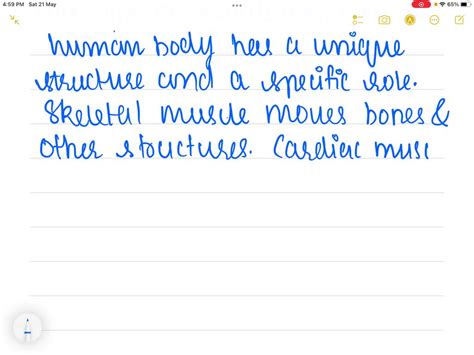 4:59 PM Sat 21 May
65%
human body has a unique
structure and a specific role.
Skeletal muscle moves bones &
other structures. Cardiac musc